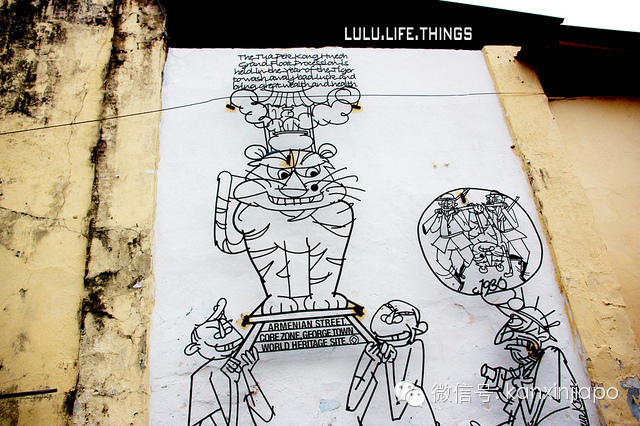 LULU.LIFE.THINGS
The Tua Pek Kong Hneoh
Grand Float Procession is
held in the Year of the Tiger
to wash away bad luck and
bring great wealth and health
c.1930
ARMENIAN STREET,
CORE ZONE, GEORGE TOWN
WORLD HERITAGE SITE.
微信号: kanxinjiapo